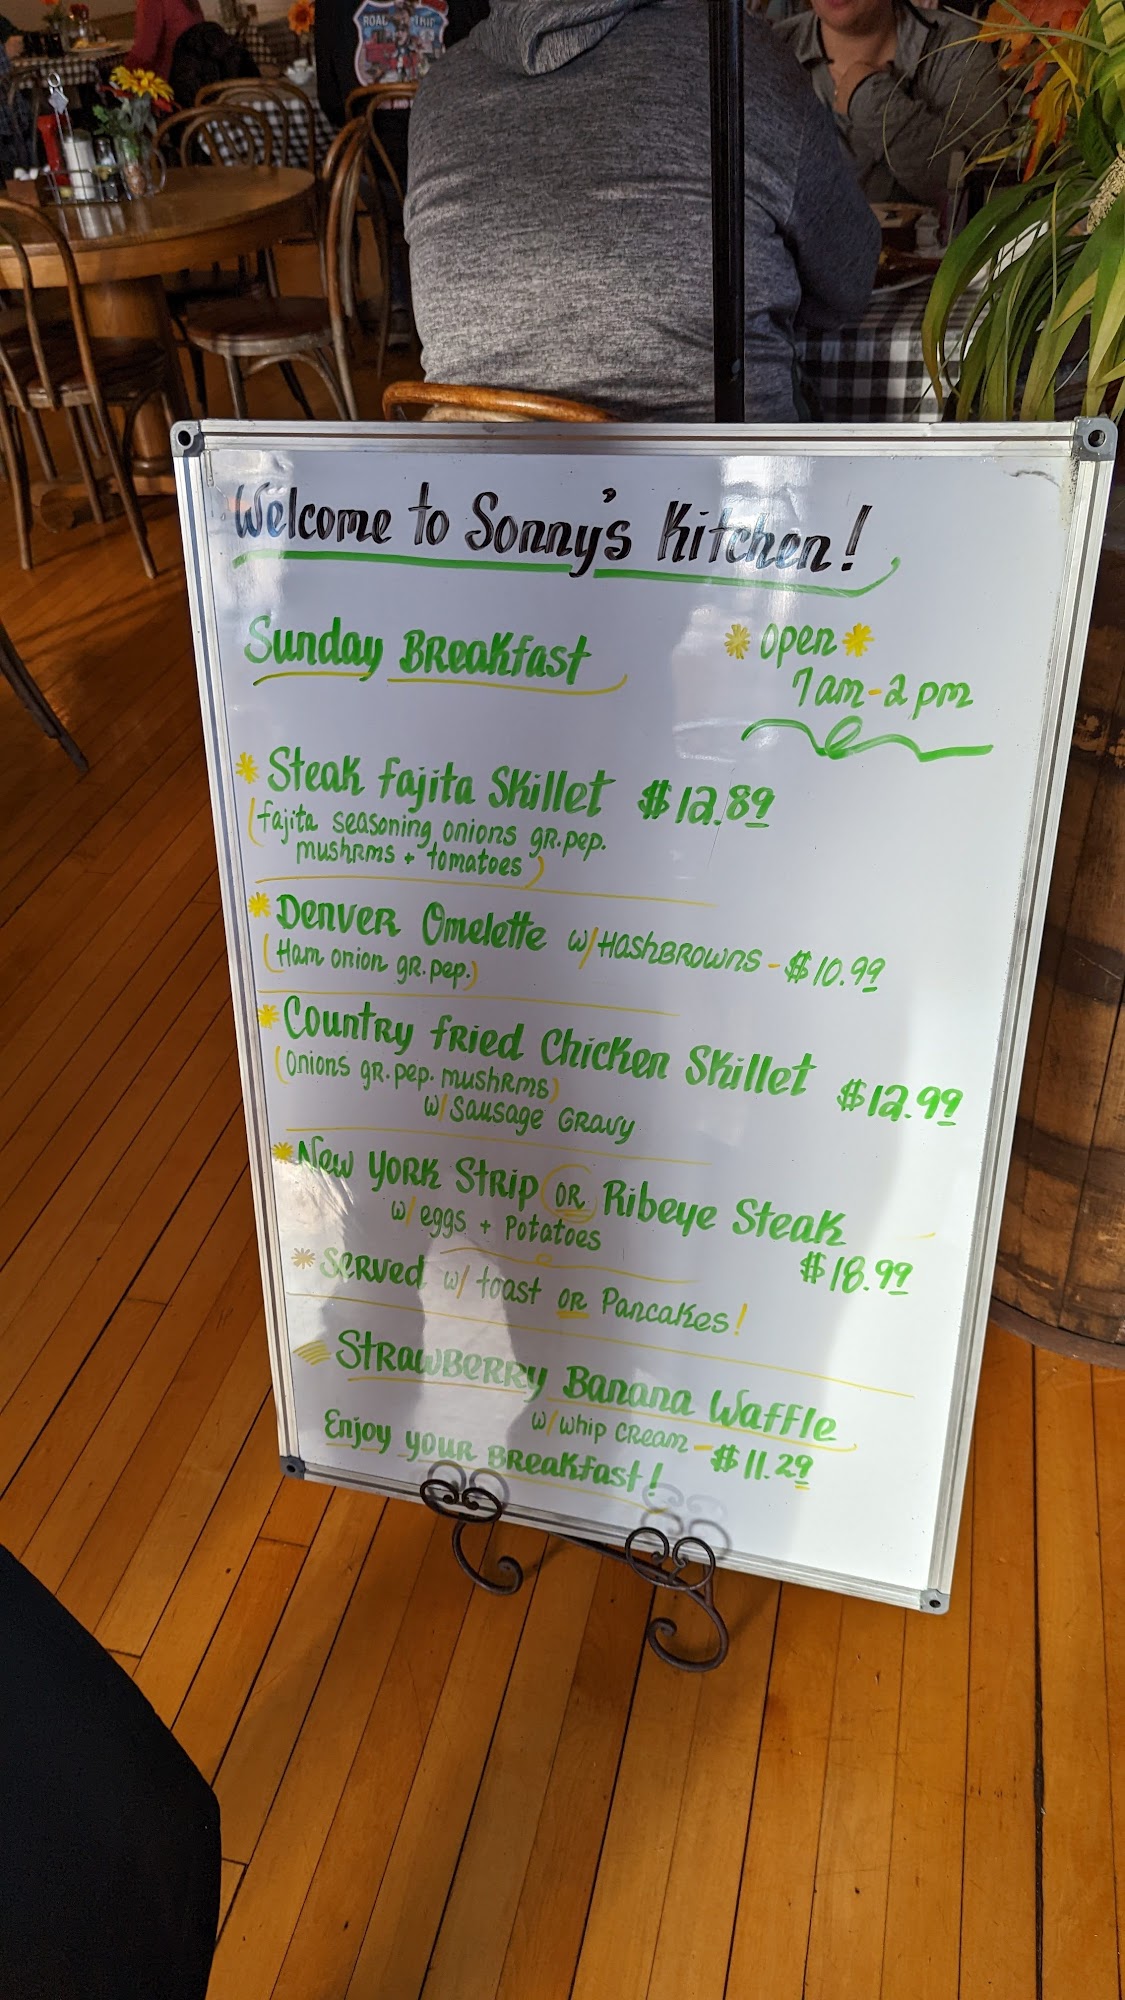 ROAD TRIP
Welcome to Sonny's Kitchen!
Sunday Breakfast
Open
7am-2pm
Steak Fajita Skillet $12.89
(fajita seasoning onions gr.pep.
mushrms + tomatoes)
Denver Omelette w/Hashbrowns - $10.99
(Ham onion gr.pep.)
Country Fried Chicken Skillet $12.99
(onions gr.pep. mushrms)
w/Sausage Gravy
New York Strip or Ribeye Steak
w/eggs + Potatoes
$18.99
Served w/ toast or Pancakes!
Strawberry Banana Waffle
w/whip cream - $11.29
Enjoy your Breakfast!